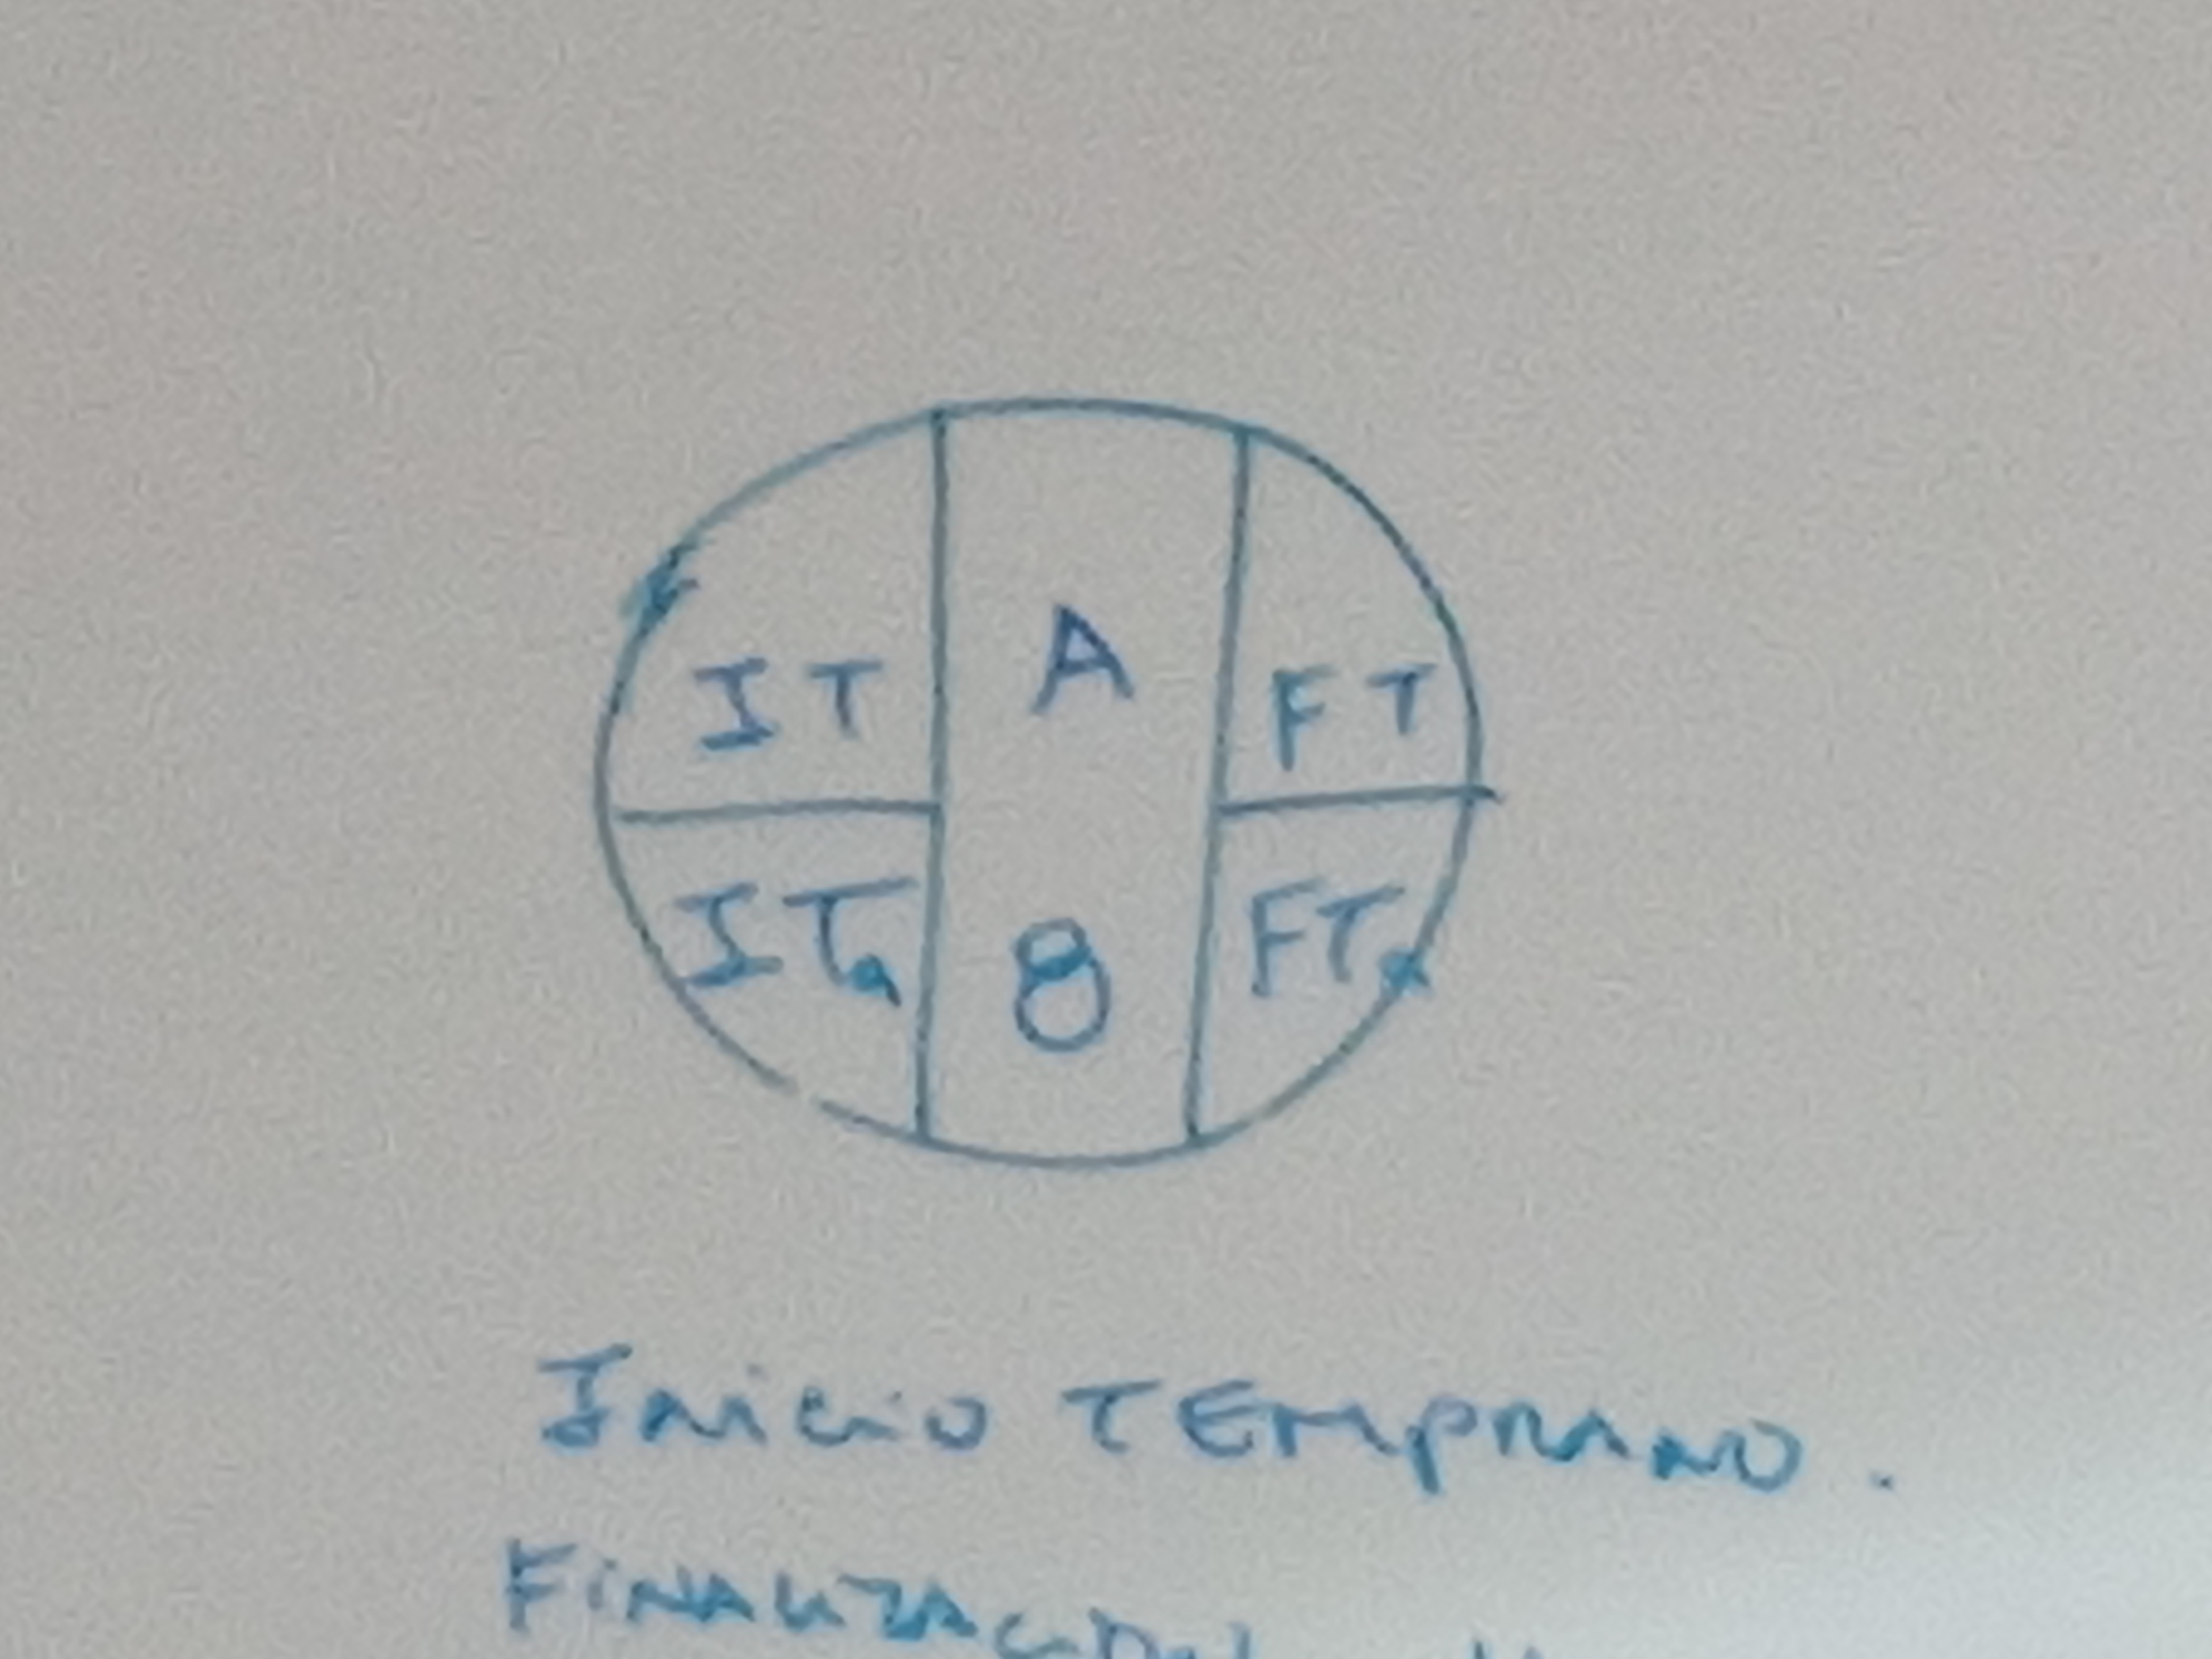 IT A FT
ITa 8 FTa
Inicio TEMPRANO.
FINALIZACION